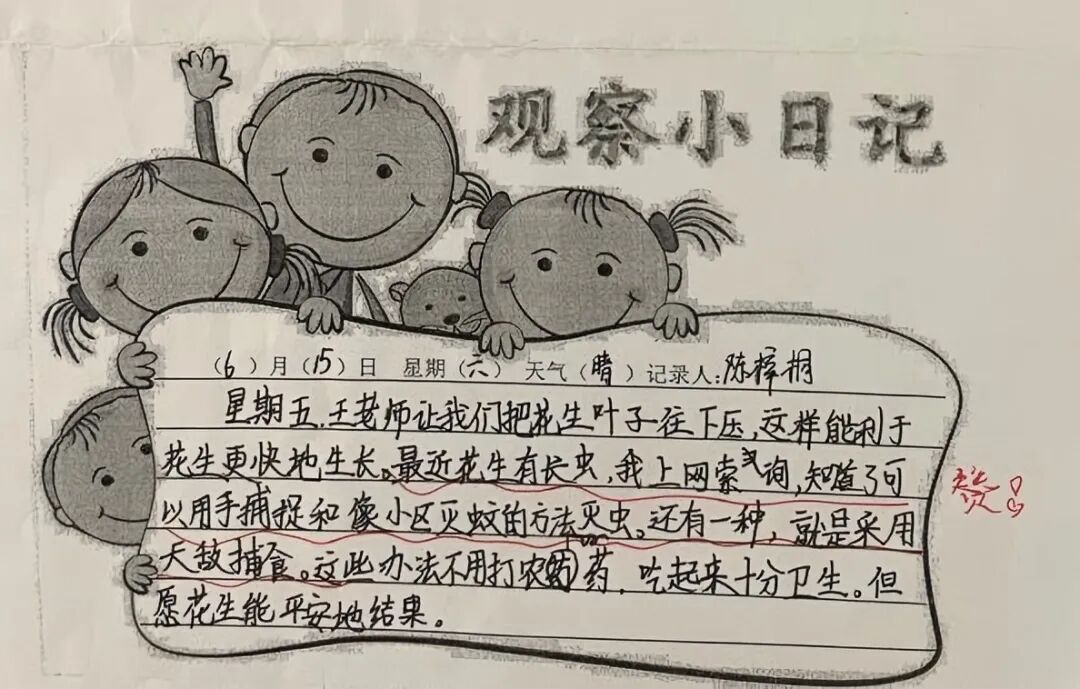 观察小日记
（6）月（15）日 星期（六） 天气（晴）记录人：陈梓桐
星期五，王老师让我们把花生叶子往下压，这样能利于
花生更快地生长。最近花生有长虫，我上网索询，知道了可
以用手捕捉和像小区灭蚊的方法灭虫。还有一种，就是采用
天敌捕食。这些办法不用打农药，吃起来十分卫生。但
愿花生能平安地结果。
赞！